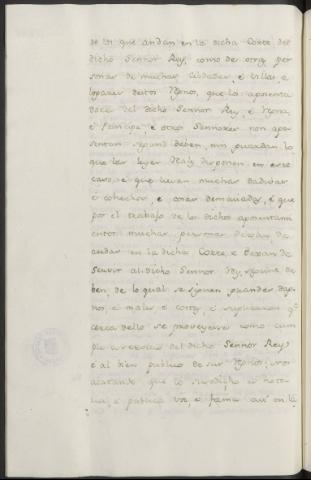 de los que andan en la dicha Corte del
dicho Sennor Rey, como de otras per
sonas de muchas Cibdades, é Villas, é
logares destos Regnos, que los aposenta
dores del dicho Sennor Rey, é Reyna,
é Principe, é otros Sennores non apo
sentan segund deben, nin guardan lo
que las leyes Reales disponen en este
caso, é que lievan muchas dadivas
é cohechos, é cosas demasiadas, é que
por el trabajo de los dichos aposentami
entos muchas personas dexan de
andar en la dicha Corte, é dexan de
Servir al dicho Sennor Rey, segund de
ben, de lo qual se siguen grandes dap
nos, é males, é costas, é suplicaron que
cerca dello se proveyese como cum
ple a servicio del dicho Sennor Rey,
é al bien publico de sus Regnos; nos
acatando que lo susodicho es noto
rio, é publica voz, é fama asi en la